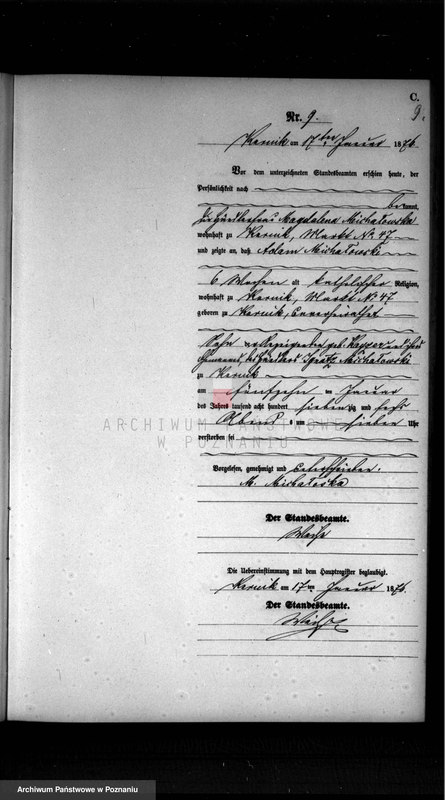 C.
9.
Nr. 9.
Kurnik am 17ten Januar 1876
Vor dem unterzeichneten Standesbeamten erschien heute, der
Persönlichkeit nach
bekannt,
die Händlerfrau Magdalena Michałowska
wohnhaft zu Kurnik, Markt No 47
und zeigte an, daß Adam Michałowski
6 Wochen alt katholischer Religion,
wohnhaft zu Kurnik, Markt No 47
geboren zu Kurnik, unverheirathet
Sohn der
des Händlers Ignatz Michałowski
zu Kurnik
am fünfzehn ten Januar
des Jahres tausend acht hundert siebenzig und sechs
Abend s um sieben Uhr
verstorben sei
Vorgelesen, genehmigt und unterschrieben.
M. Michałoska
Der Standesbeamte.
Die Uebereinstimmung mit dem Hauptregister beglaubigt.
Kurnik am 17 ten Januar 1876.
Der Standesbeamte.
ARCHIWUM PAŃSTWOWE
W POZNANIU
Archiwum Państwowe w Poznaniu